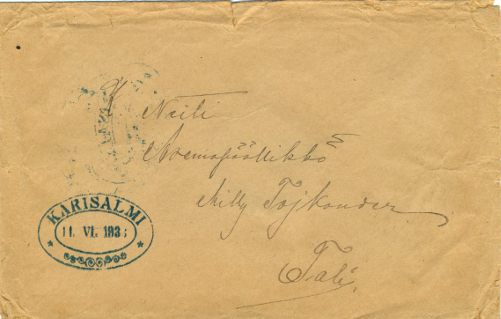 Neiti
Asemapäällikkö
Milly Tojkander
Tali
KARISALMI
11. VI. 193